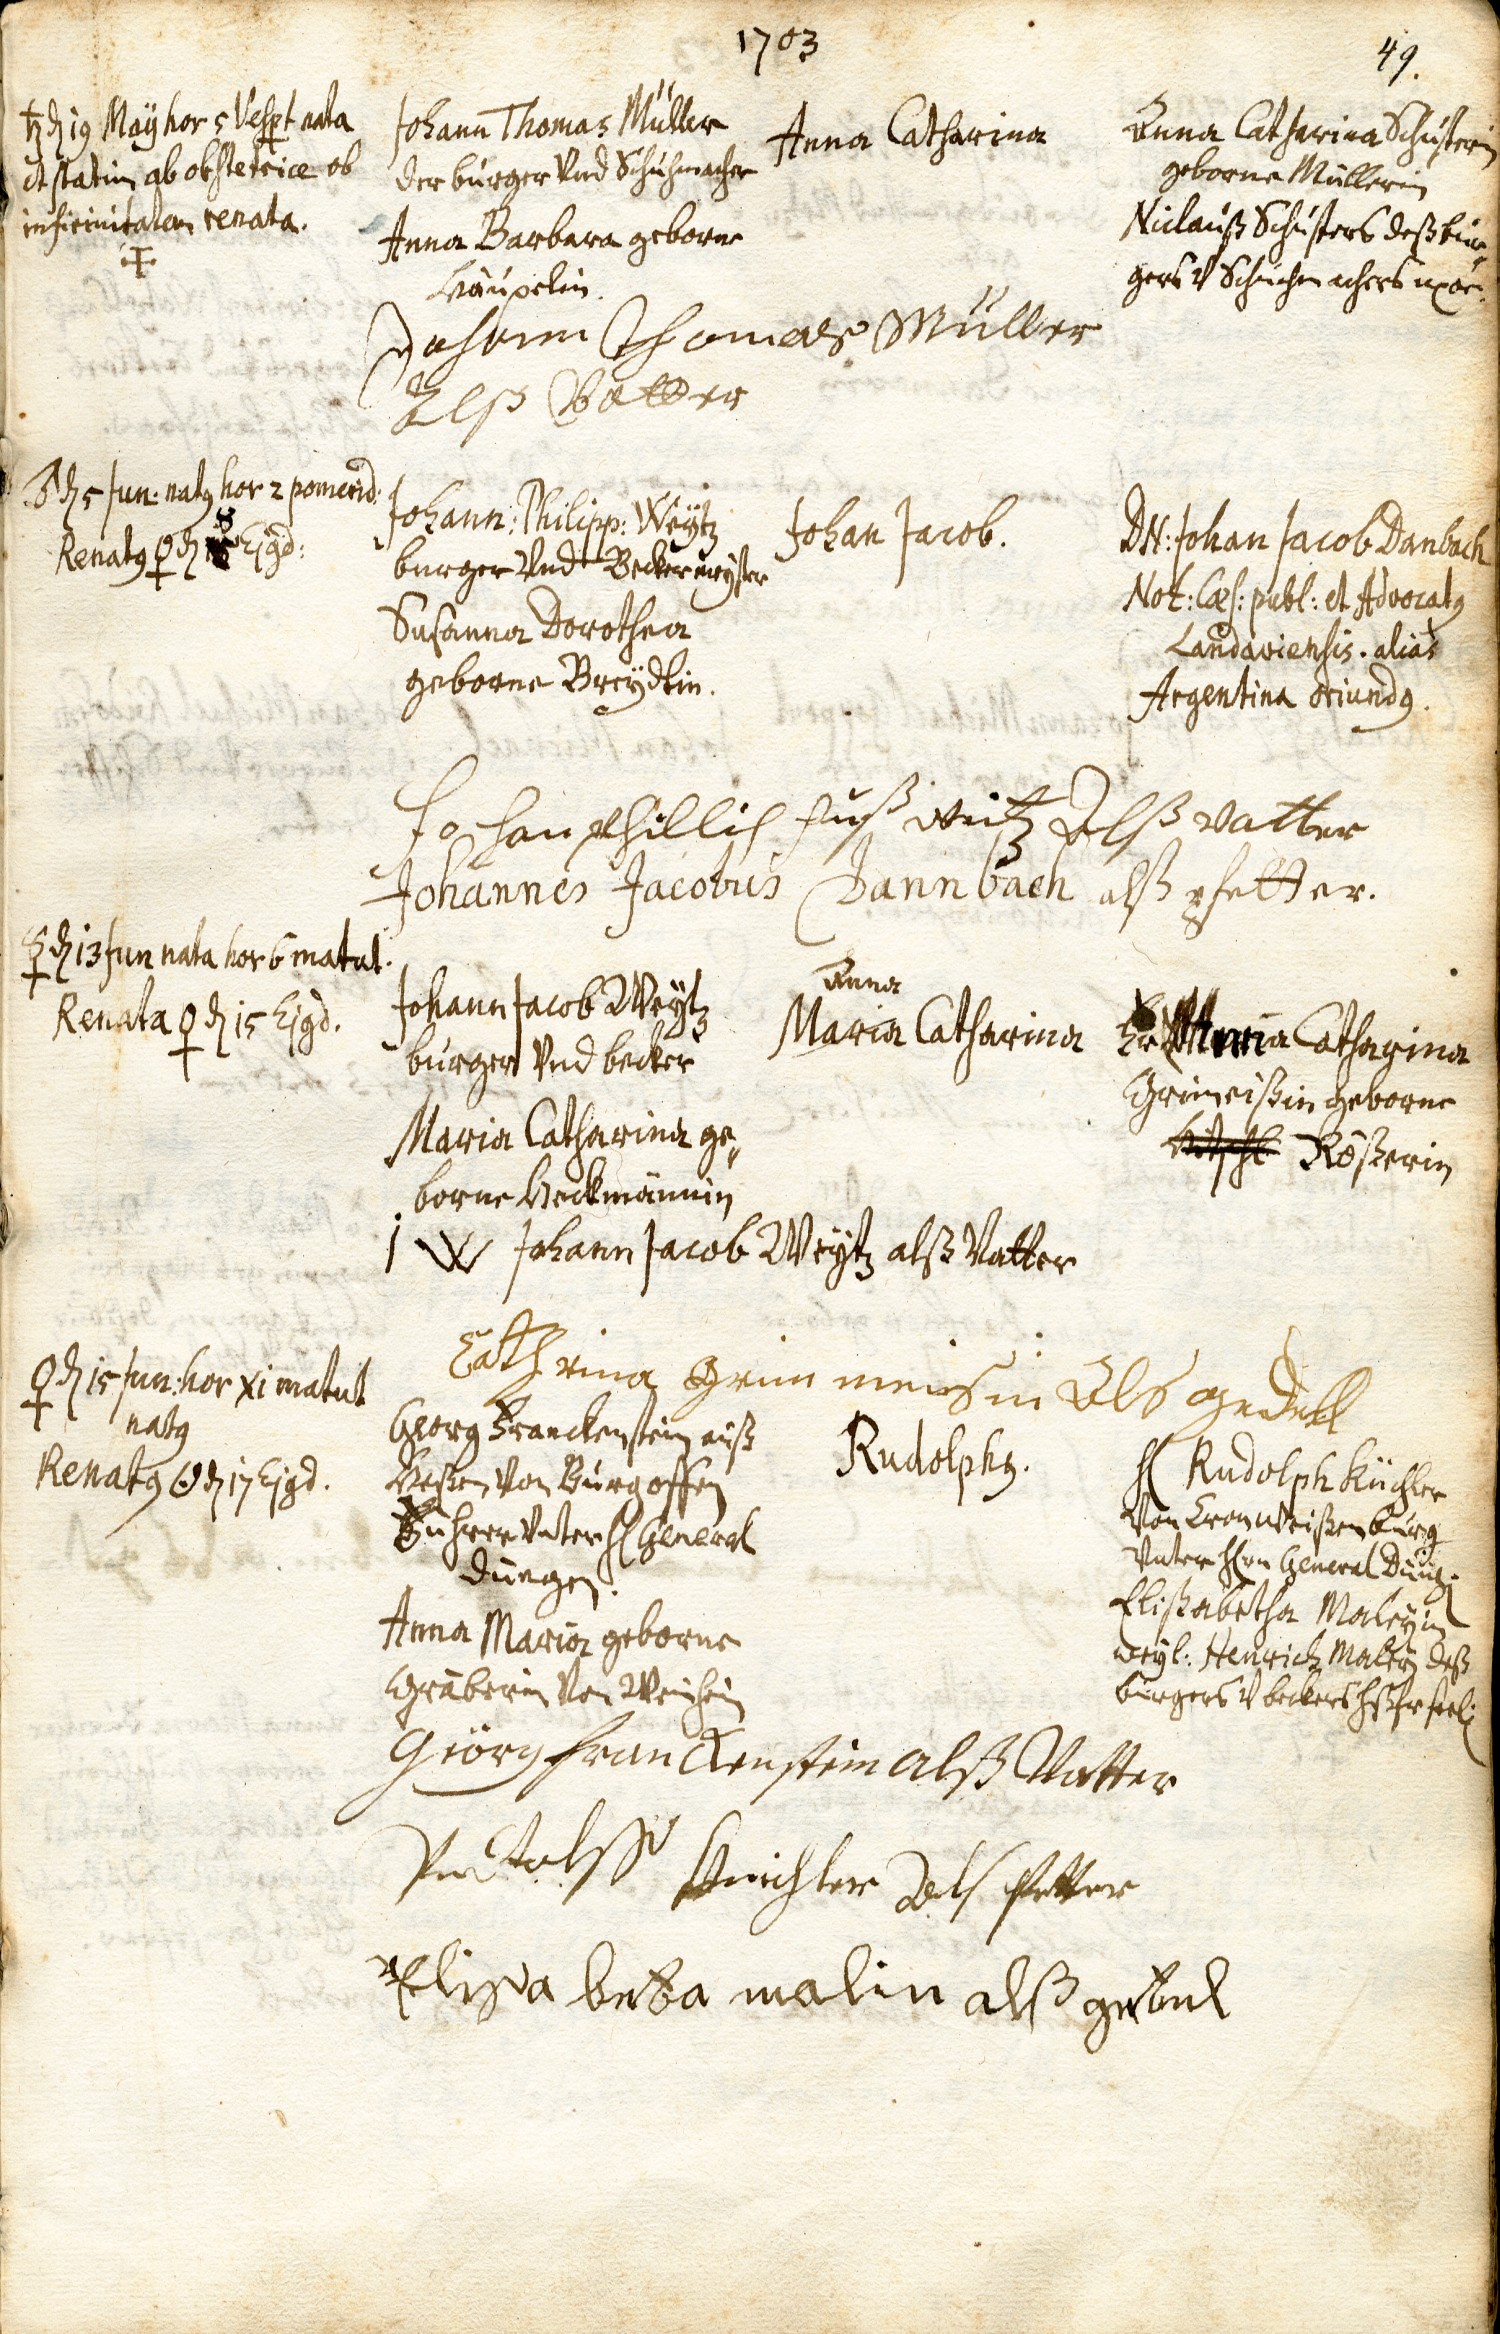 1703
49.
♄ d 19 Maÿ hor 5 Vespt nata
et statim ab obstetrice ob
infirmitatem renata.
Johann Thomas Müller
der burger Vnd Schuhmacher
Anna Barbara geborne
Häupelin.
Anna Catharina
Anna Catharina Schusterin
geborne Müllerin
Niclauß Schusters deß bur„
gers V Schuhmachers uxor.
Johann Thomas Müller
Alß Vatter
♂ d 5 Jun: natꝰ hor 2 pomerid:
Renatꝰ ♀ d 8 Ejgd:
Johann: Philipp: Weÿtz
burger Vnd Beckermeÿster
Susanna Dorothea
geborne Breÿdtin.
Johan Jacob.
DN: Johan Jacob Danbach
Not: Cæs: publ: et Advocatꝰ
Landaviensis. alias
Argentina oriundꝰ.
Johan Phillip weitz Alß vatter
Johannes Jacobus Dannbach alß pfetter.
☿ d 13 Jun nata hor 6 matut.
Renata ♀ d 15 Ejgd.
Johann Jacob Weÿtz
burger Vnd becker
Maria Catharina ge„
borne Heckmännin
Anna
Maria Catharina
Maria Catharina
Grimeißin geborne
Rößerin
J W Johann Jacob Weÿtz alß Vatter
Cathrina grim meisin Als gedell
♀ d 15 Jun: hor xi matut
natꝰ
Renatꝰ ☉ d 17 Ejgd.
Georg Franckenstein auß
Heßen Von Burgoffen
Führer Vnter H General
Düngen.
Anna Maria geborne
Gräberin Von Weinheim
Rudolphꝰ.
H Rudolph Küchler
Von Cronweißenburg
Vnter Hrn General Düng:
Elisabetha Maleÿin
weÿl: Henrich Maleÿ deß
burgers V beckers
Geörg Franckenstein alß Vatter
Rudolff Küichler Als Petter
Elisa beta malin alß gedel